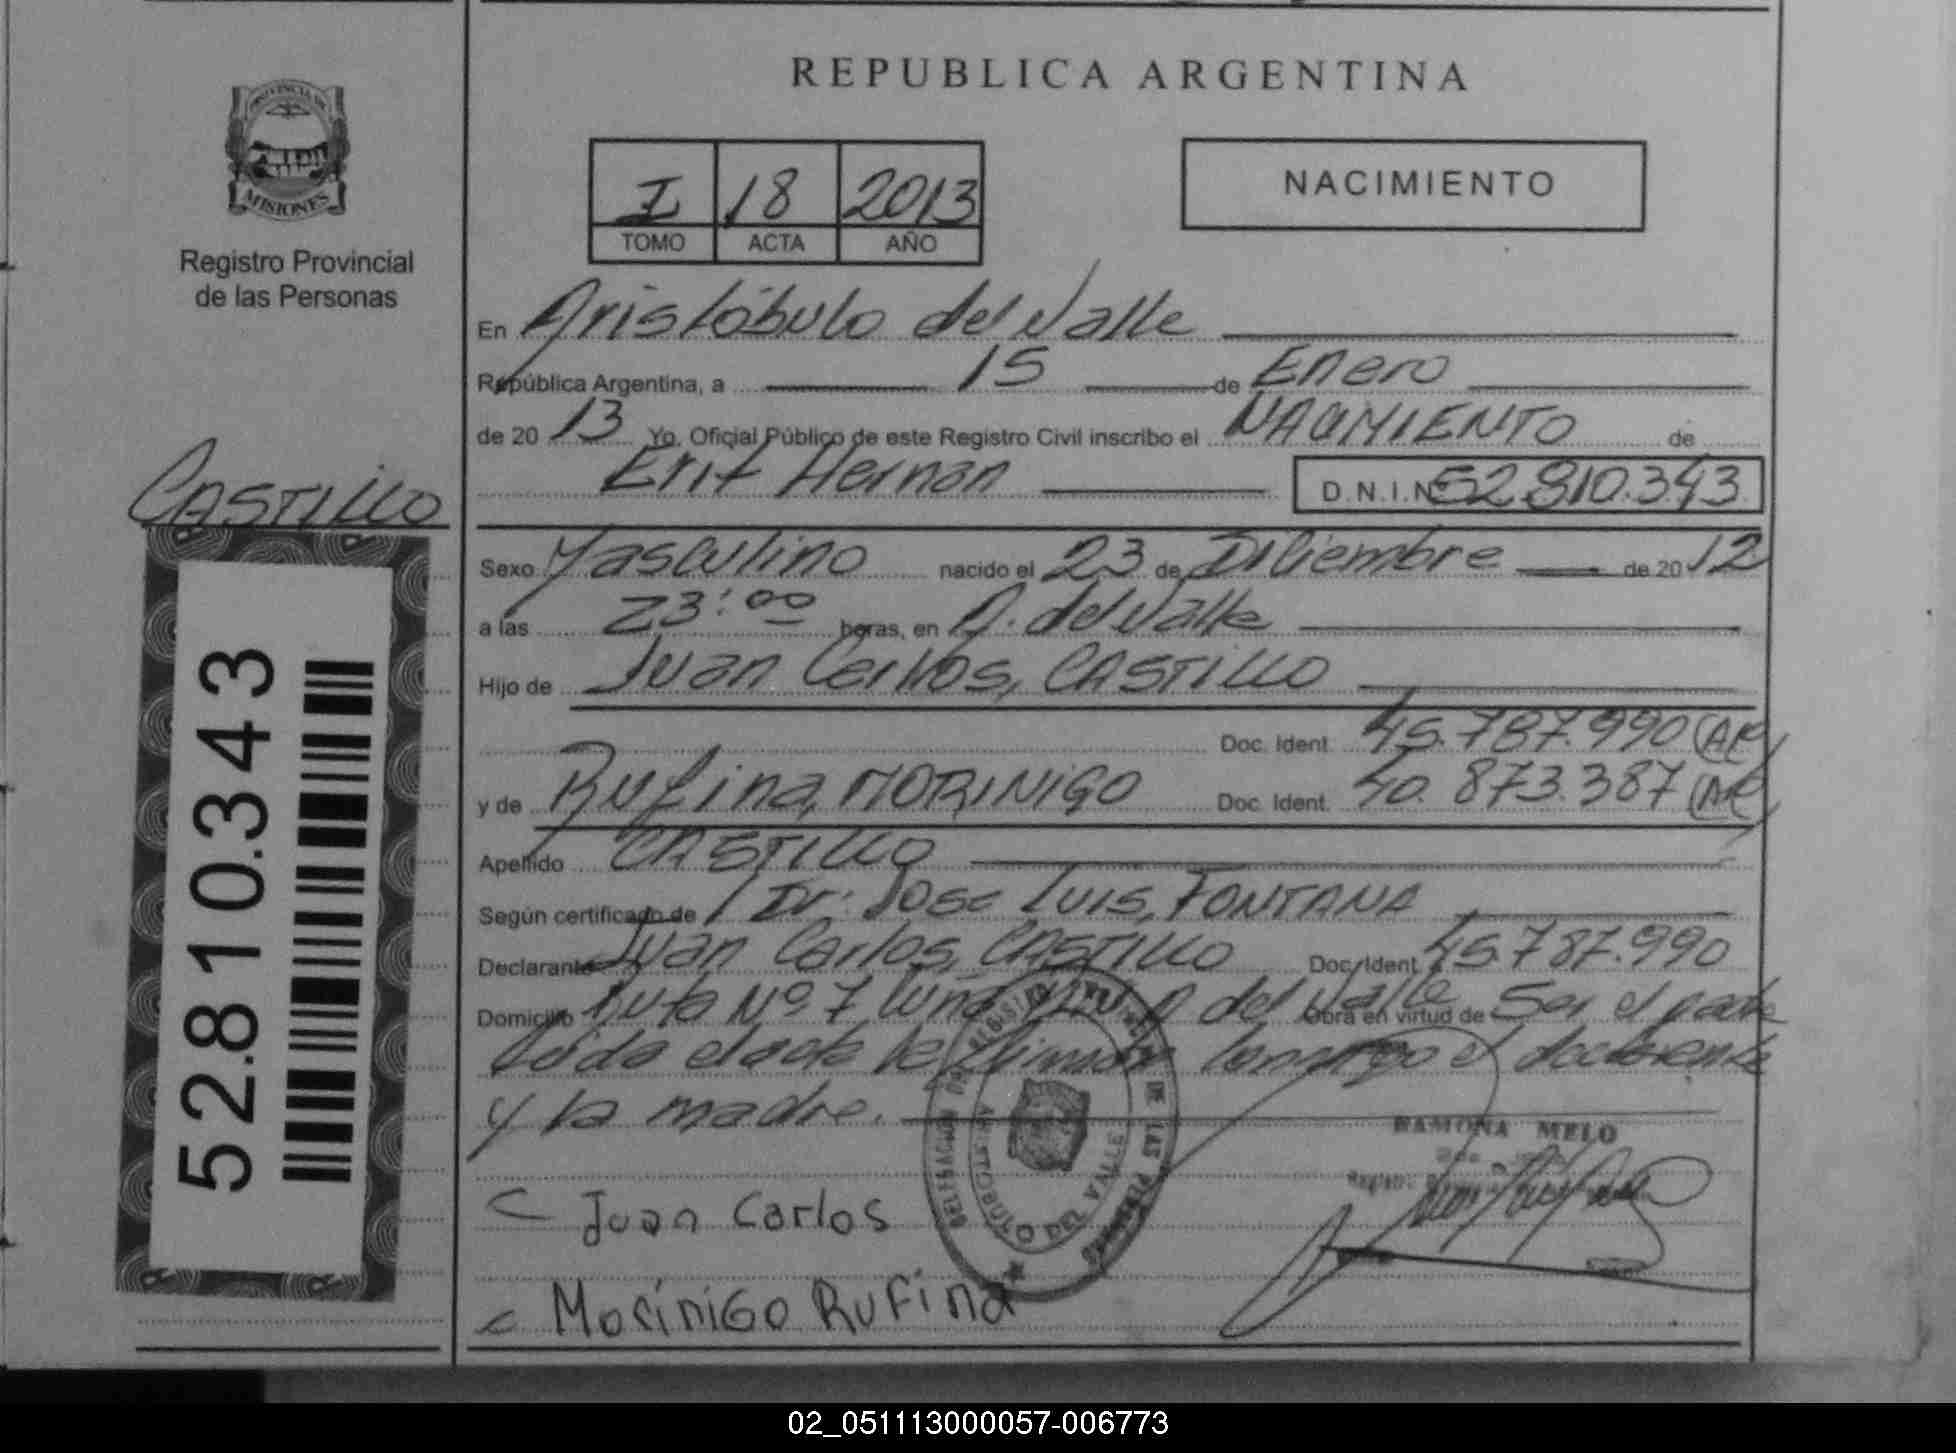 REPUBLICA ARGENTINA
PROVINCIA DE
MISIONES
Registro Provincial
de las Personas
I 18 2013
TOMO ACTA AÑO
NACIMIENTO
En Aristóbulo del Valle
República Argentina, a 15 de Enero
de 20 13 Yo, Oficial Público de este Registro Civil inscribo el NACIMIENTO de
Erit Hernan D.N.I.Nº 52.810.343
CASTILLO
Sexo Masculino nacido el 23 de Diciembre de 20 12
a las 23:00 horas, en A. del Valle
Hijo de Juan Carlos, CASTILLO
Doc. Ident. 45.787.990 (AR)
y de Rufina, MORINIGO Doc. Ident. 40.873.387 (AR)
Apellido CASTILLO
Según certificado de Dr. Jose Luis, FONTANA
Declarante Juan Carlos, CASTILLO Doc. Ident. 45.787.990
Domicilio Ruta Nº 7 A del Valle Obra en virtud de Ser el padre
Leida el acta la firman conmigo el declarante
y la madre.
52.810.343
DELEGACION DEL REGISTRO PROVINCIAL DE LAS PERSONAS
ARISTOBULO DEL VALLE
RAMONA MELO
C Juan Carlos
Morinigo Rufina
02_051113000057-006773